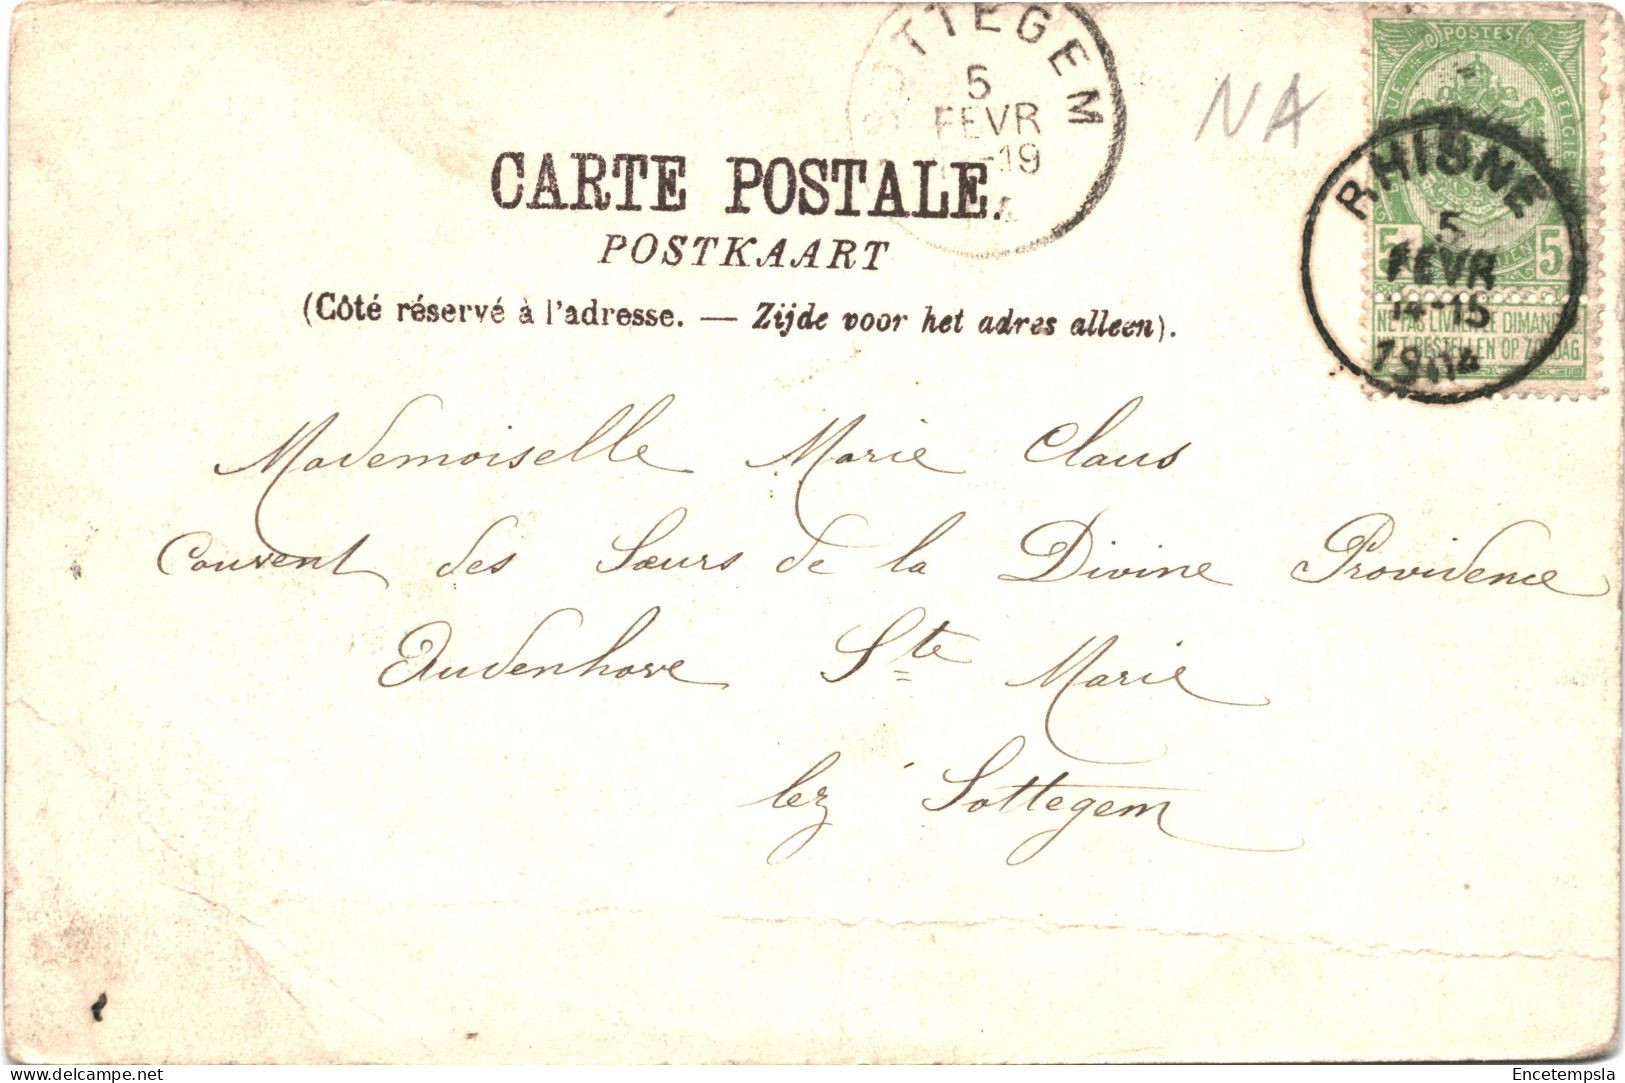 OTTEGEM
5
FEVR
-19
NA
POSTES
BELGIE
RHISNE
5
FEVR
14-15
1904
5 5
NE PAS LIVRER LE DIMANCHE
NIET BESTELLEN OP ZONDAG
CARTE POSTALE.
POSTKAART
(Côté réservé à l'adresse. — Zijde voor het adres alleen).
Mademoiselle Marie Claus
Couvent des Sœurs de la Divine Providence
Audenhove Ste Marie
lez Sottegem
delcampe.net
Encetempsla